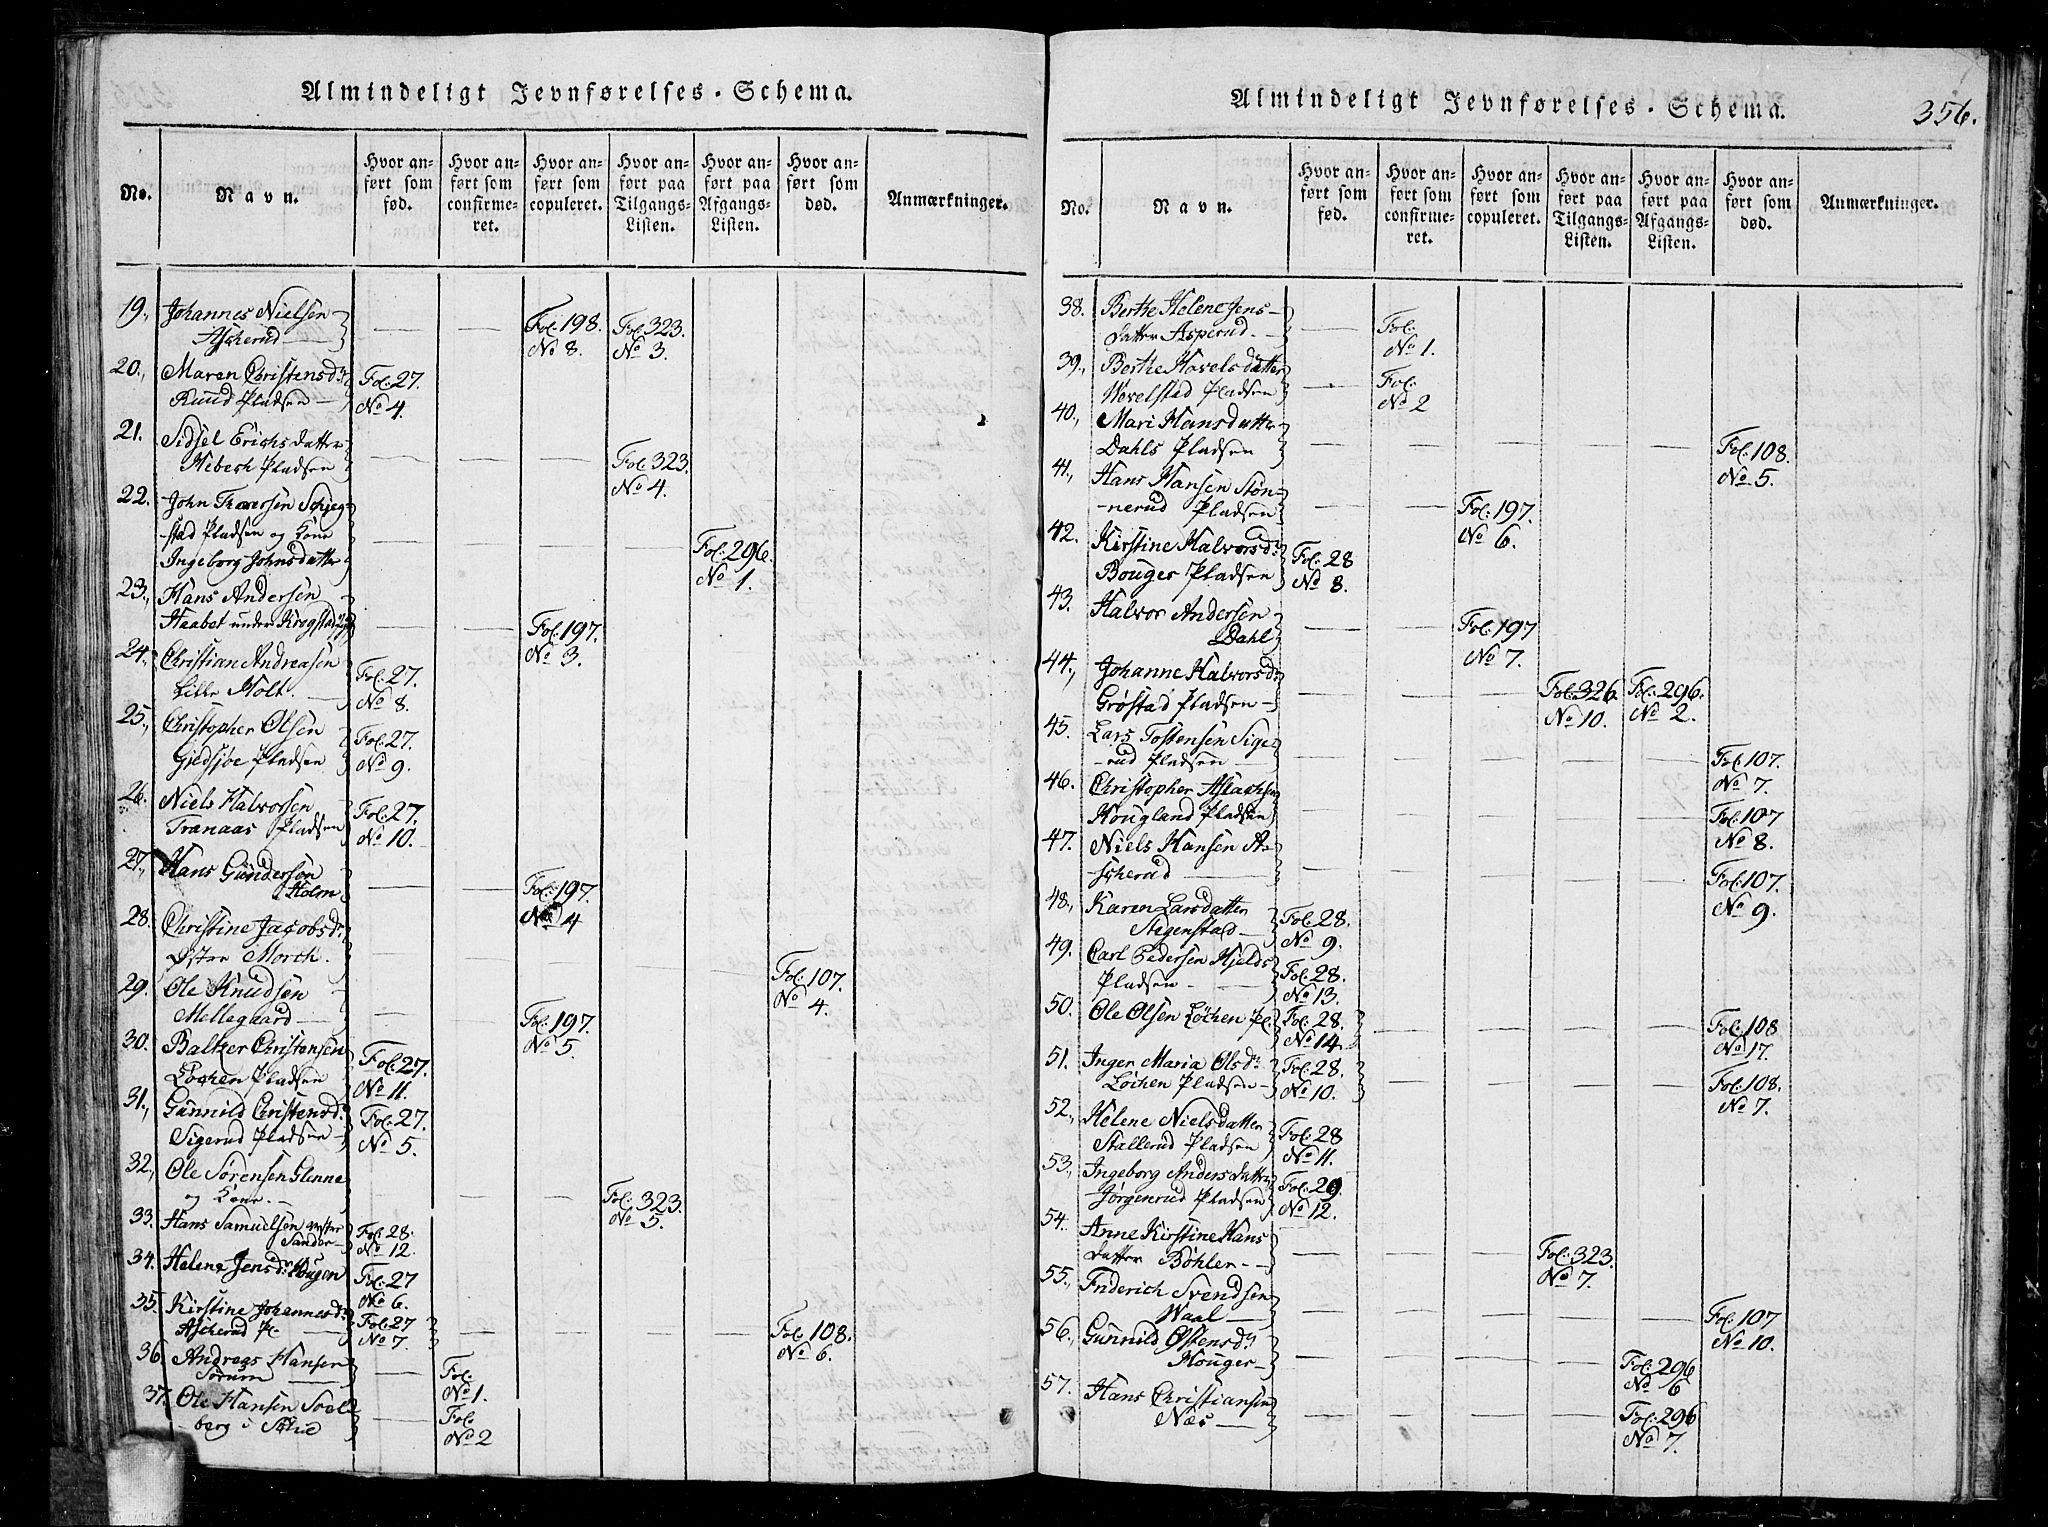 Almindeligt Jevnførelses-Schema.
No. Navn. Hvor anført som fød. Hvor anført som confirmeret. Hvor anført som copuleret. Hvor anført paa Tilgangs-Listen. Hvor anført paa Afgangs-Listen. Hvor anført som død. Anmærkninger.
19., Johannes Nielsen
Ascherud — — — Fol. 198. Fol. 323.
No 8. No 3.
20., Maren Christensdr Fol. 27.
Ruud Pladsen — No 4.
21. Sidsel Erichsdatter
Hebech Pladsen — — — Fol. 323.
No 4.
22. John Thoersen Schieg
stad Pladsen og Kone
Ingeborg Johnsdatter — — — — Fol. 296.
No 1.
23., Hans Andersen
Haabet under Krogstad — — Fol. 197.
No 3.
24., Christian Andreasen Fol. 27.
Lille Holt. — No 8.
25., Christopher Olsen Fol. 27.
Giedsjøe Pladsen No 9.
26. Niels Halvorsen Fol. 27.
Tranaas Pladsen No 10.
27., Hans Gundersen
Holm — — Fol. 197.
No 4
28. Christine Jacobsdr
Østre Morch. — — — — — Fol. 107.
No 4.
29. Ole Knudsen
Mellegaard — — — Fol. 197.
No 5.
30. Baltzer Christensen Fol. 27.
Løchen Pladsen No 11.
31., Gunnild Christensdr Fol. 27.
Sigerud Pladsen — No 5.
32., Ole Sørensen Glenne
og Kone. — — — — Fol. 323.
No 5.
33. Hans Samuelsen vester Fol. 28.
Sander — No 12.
34. Helene Jensdr Hougen Fol. 27
No 6.
35. Kirstine Johannesdr Fol. 27
Ascherud Pl. — No 7. — — — — Fol. 108.
No 6.
36. Andreas Hansen
Sørum — Fol.
No 1.
37. Ole Hansen Soel
berg i — Fol.
No 2
Almindeligt Jevnførelses-Schema. 356.
No. Navn. Hvor anført som fød. Hvor anført som confirmeret. Hvor anført som copuleret. Hvor anført paa Tilgangs-Listen. Hvor anført paa Afgangs-Listen. Hvor anført som død. Anmærkninger.
38. Berthe Helene Jens
datter Asperud. — — Fol.
No 1.
39., Berthe Havelsdatter
Vevelstad Pladsen — Fol.
No 2
40., Mari Hansdatter
Dahls Pladsen — — — — — Fol. 108.
No 5.
41., Hans Hansen Støn-
nerud Pladsen — — Fol. 197.
No 6.
42. Kirstine Halvorsdr Fol. 28
Bouger Pladsen No 8.
43. Halvor Andersen
Dahl — — Fol. 197
No 7.
44., Johanne Halvorsdr
Grøstad Pladsen — — — — Fol. 326. Fol. 296.
No 10. No 2.
45. Lars Tostensen Sige-
rud Pladsen — — — — — — Fol. 107.
No 7.
46. Christopher Aslachsen
Hougland Pladsen — — — — — Fol. 107
No 8.
47. Niels Hansen A-
scherud — — — — — — Fol. 107.
No 9.
48., Karen Larsdatter Fol. 28.
Stegenstad — No 9.
49. Carl Pedersen Hjelds Fol. 28.
Pladsen — No 13.
50. Ole Olsen Løchen Pl. Fol. 28. — — — — Fol. 108
No 14. No 17.
51. Inger Maria Olsdr Fol. 28. — — — — Fol. 108.
Løchen Pladsen — No 10. No 7.
52., Helene Nielsdatter Fol. 28
Stallerud Pladsen No 11.
53., Ingeborg Andersdatter Fol. 29.
Jørgenrud Pladsen No 12.
54. Anne Kirstine Hans
datter Bøhler — — — — Fol. 323.
No 7.
55., Friderich Svendsen
Waal — — — — — — Fol. 107
No 10.
56., Gunnild Østensdr
Houger — — — — — Fol. 296
No 6
57. Hans Christiansen
Næs — — — — — Fol. 296
No 7.